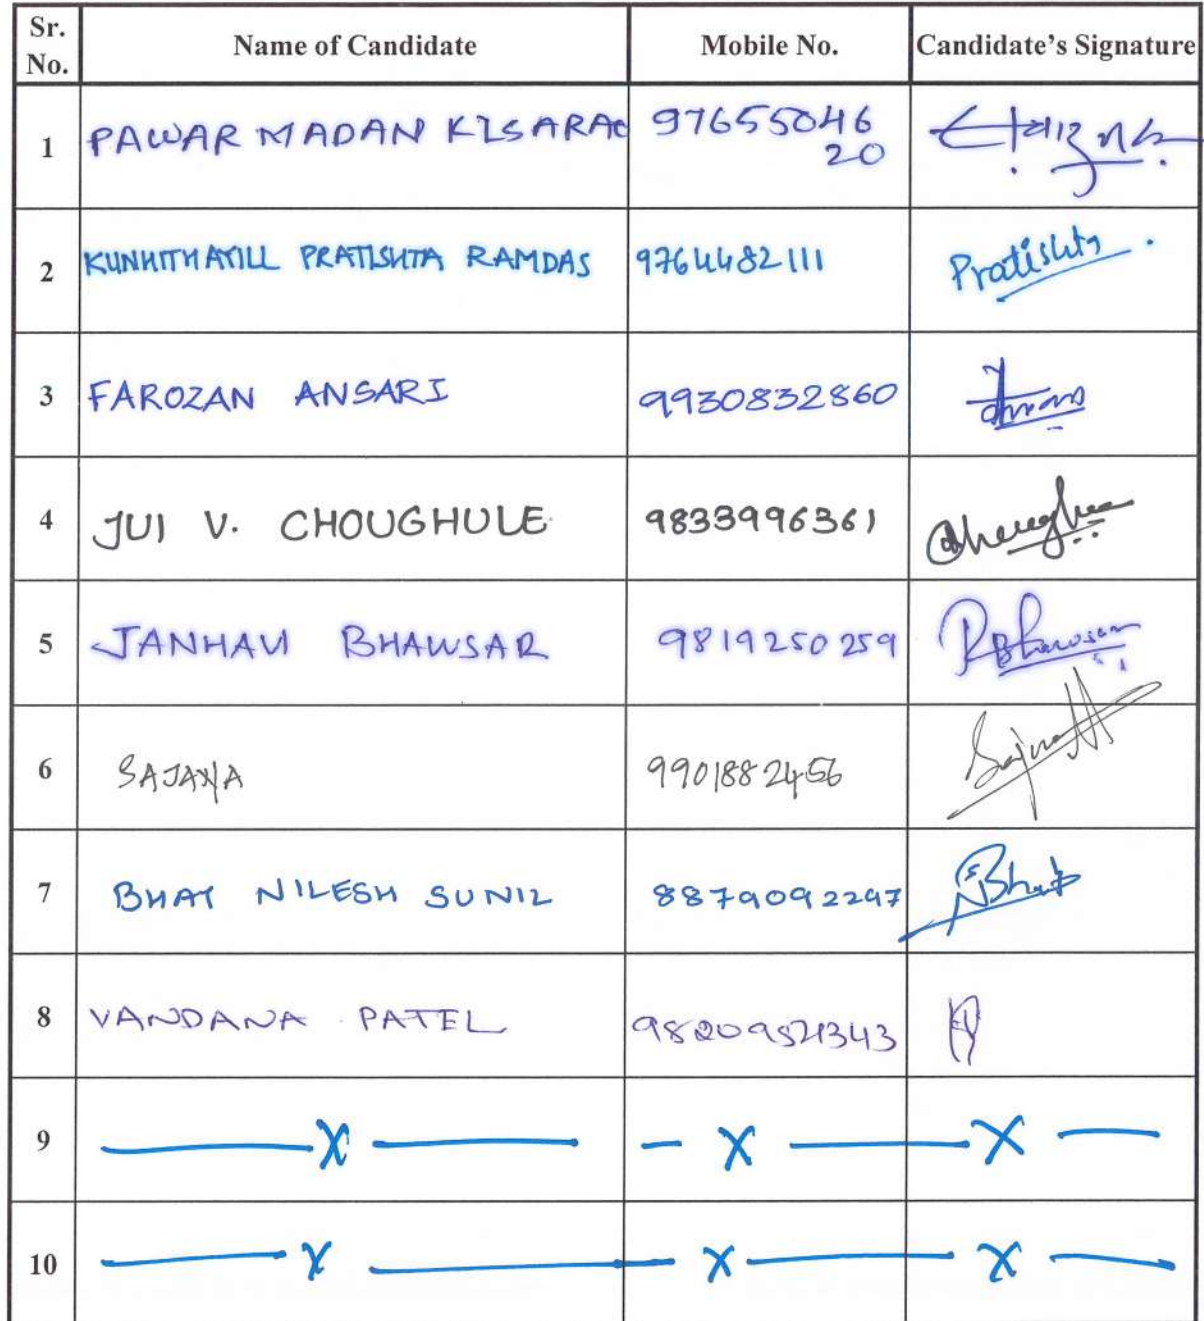 Sr. No. Name of Candidate Mobile No. Candidate's Signature
1 PAWAR MADAN KISARAO 9765504620
2 KUNHITHAYILL PRATISHTA RAMDAS 9764482111 Pratishta.
3 FAROZAN ANSARI 9930832860
4 JUI V. CHOUGHULE 9833996361
5 JANHAVI BHAWSAR 9819250259
6 SAJANA 9901882456
7 BHAT NILESH SUNIL 8879092297 Bhat
8 VANDANA PATEL
9 — X — — X — X —
10 — X — — X — X —